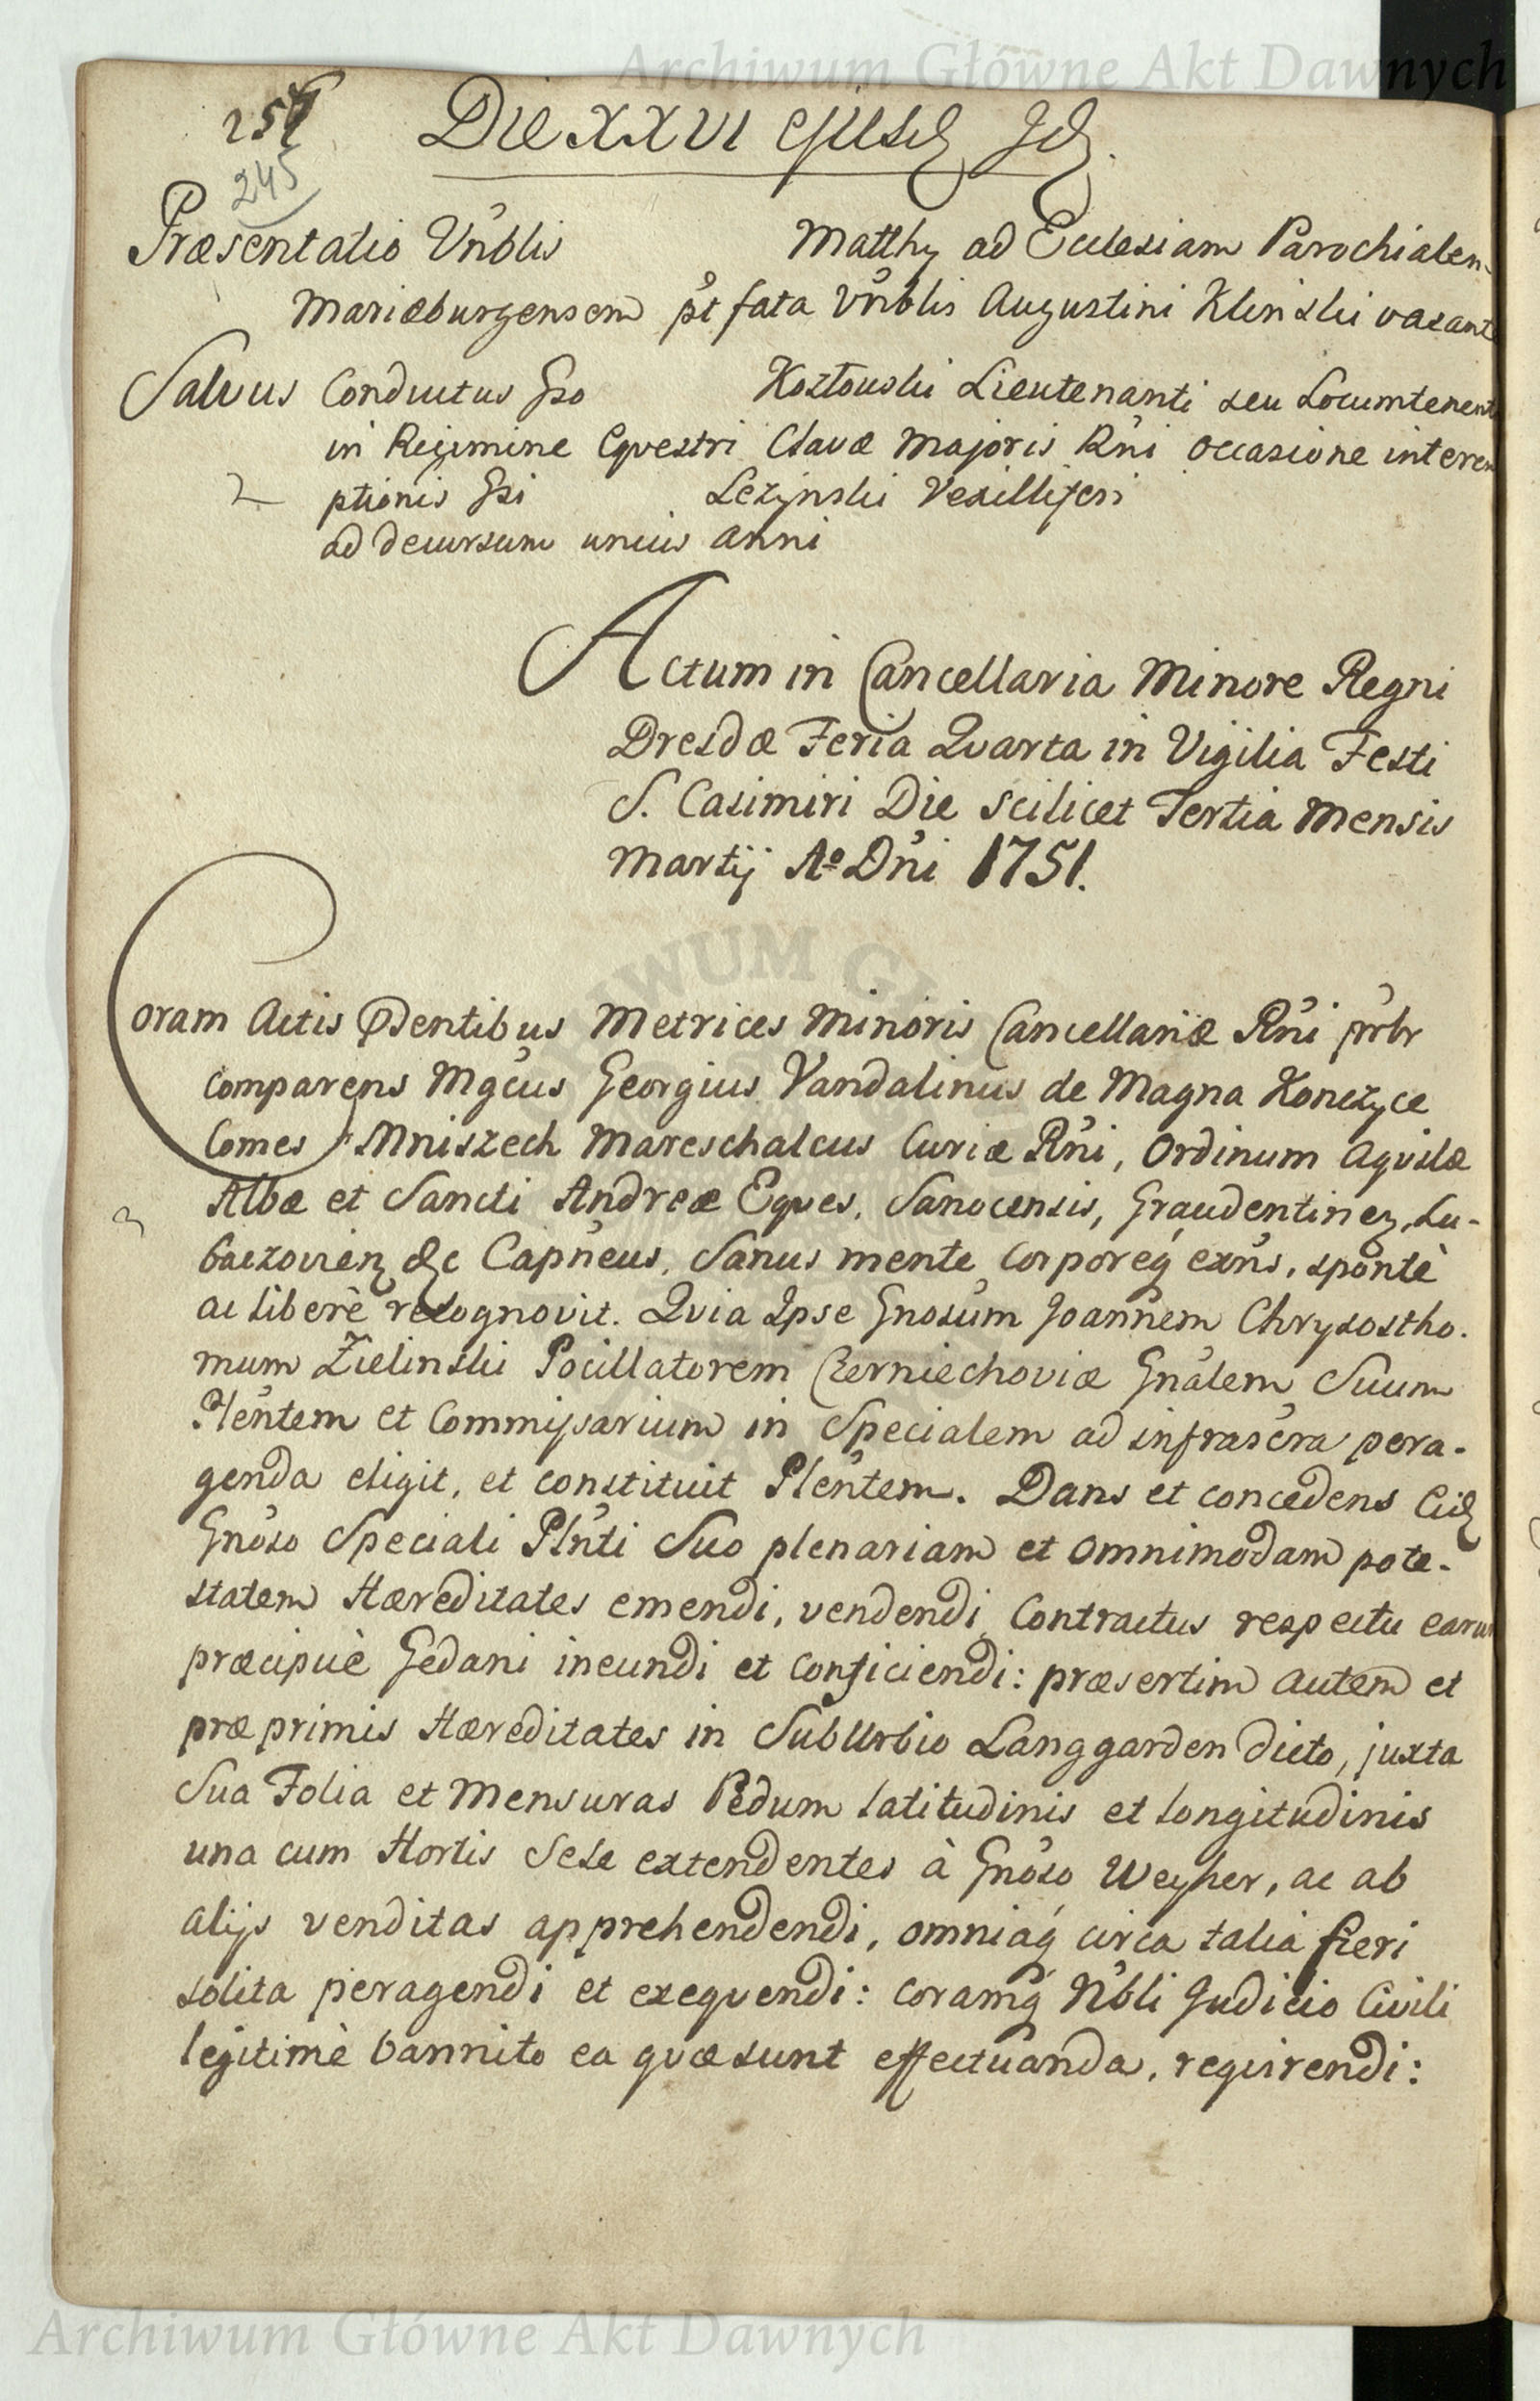 Archiwum Główne Akt Dawnych
245
Die XXVI ejusd
Præsentatio Vnblis Matthy ad Ecclesiam Parochialem
Mariæburgensem pt fata Vnblis Augustini Klinski vacant
Salvus Conductus Gso Kozłowski Lieutenanti seu Locumtenenti
in Regimine Eqvestri Clavæ Majoris Rni occasione interem
2 ptionis Gsi Lezynski Vexilliferi
ad decursum unius anni
Actum in Cancellaria Minore Regni
Dresdæ Feria Qvarta in Vigilia Festi
S. Casimiri Die scilicet Tertia Mensis
Martij Aº Dni 1751.
Coram Actis Pdentibus Metrices Minoris Cancellariæ Rni prbr
comparens Mgcus Georgius Vandalinus de Magna Konczyce
Comes Mniszech Mareschalcus Curiæ Rni, Ordinum Aqvilæ
3 Albæ et Sancti Andreæ Eqves, Sanocensis, Graudentinen, Lu-
baczovien &c Capneus, Sanus mente corporeq exns, spontè
ac liberè recognovit. Qvia Ipse Gnosum Joannem Chrysostho.
mum Zielinski Pocillatorem Czerniechoviæ Gnalem Suum
Plentem et Commissarium in Specialem ad infrascra pera-
genda eligit, et constituit Plentem. Dans et concedens Eid
Gnoso Speciali Plnti Suo plenariam et omnimodam pote-
statem Hæreditates emendi, vendendi, Contractus respectu earum
præcipuè Gedani ineundi et conficiendi: præsertim autem et
præprimis Hæreditates in SubUrbio Langgarden dicto, juxta
Sua Folia et Mensuras Pedum latitudinis et longitudinis
una cum Hortis Sese extendentes à Gnoso Weyher, ac ab
alijs venditas apprehendendi, omniaq circa talia fieri
solita peragendi et exeqvendi: coramq Nbli Judicio Civili
legitimè bannito ea qvæ sunt effectuanda, reqvirendi:
Archiwum Główne Akt Dawnych